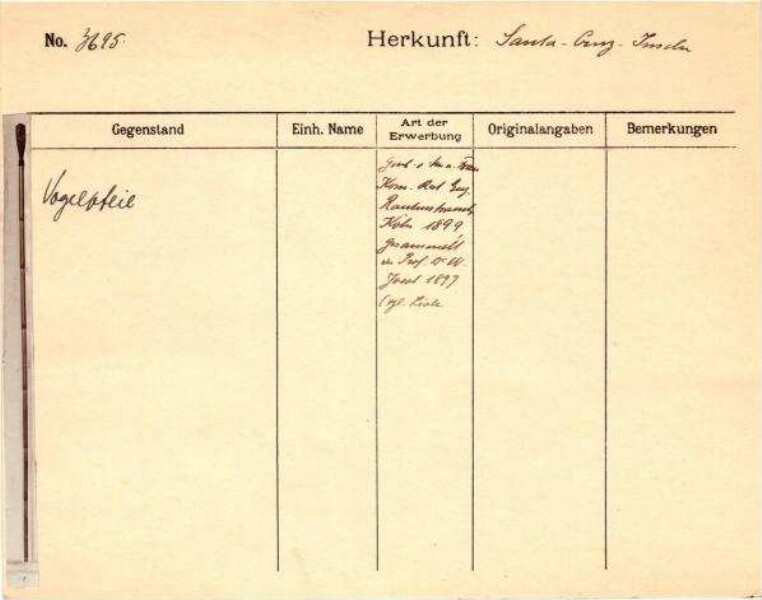 No. 3695. Herkunft: Santa-Cruz-Inseln
Gegenstand Einh. Name Art der Erwerbung Originalangaben Bemerkungen
Vogelpfeil
Gesch. v. Frau
Kom. Rat Eug.
Rautenstrauch,
Köln 1899
gesammelt
v. Prof. Dr W.
Joest 1897
(vgl. Liste